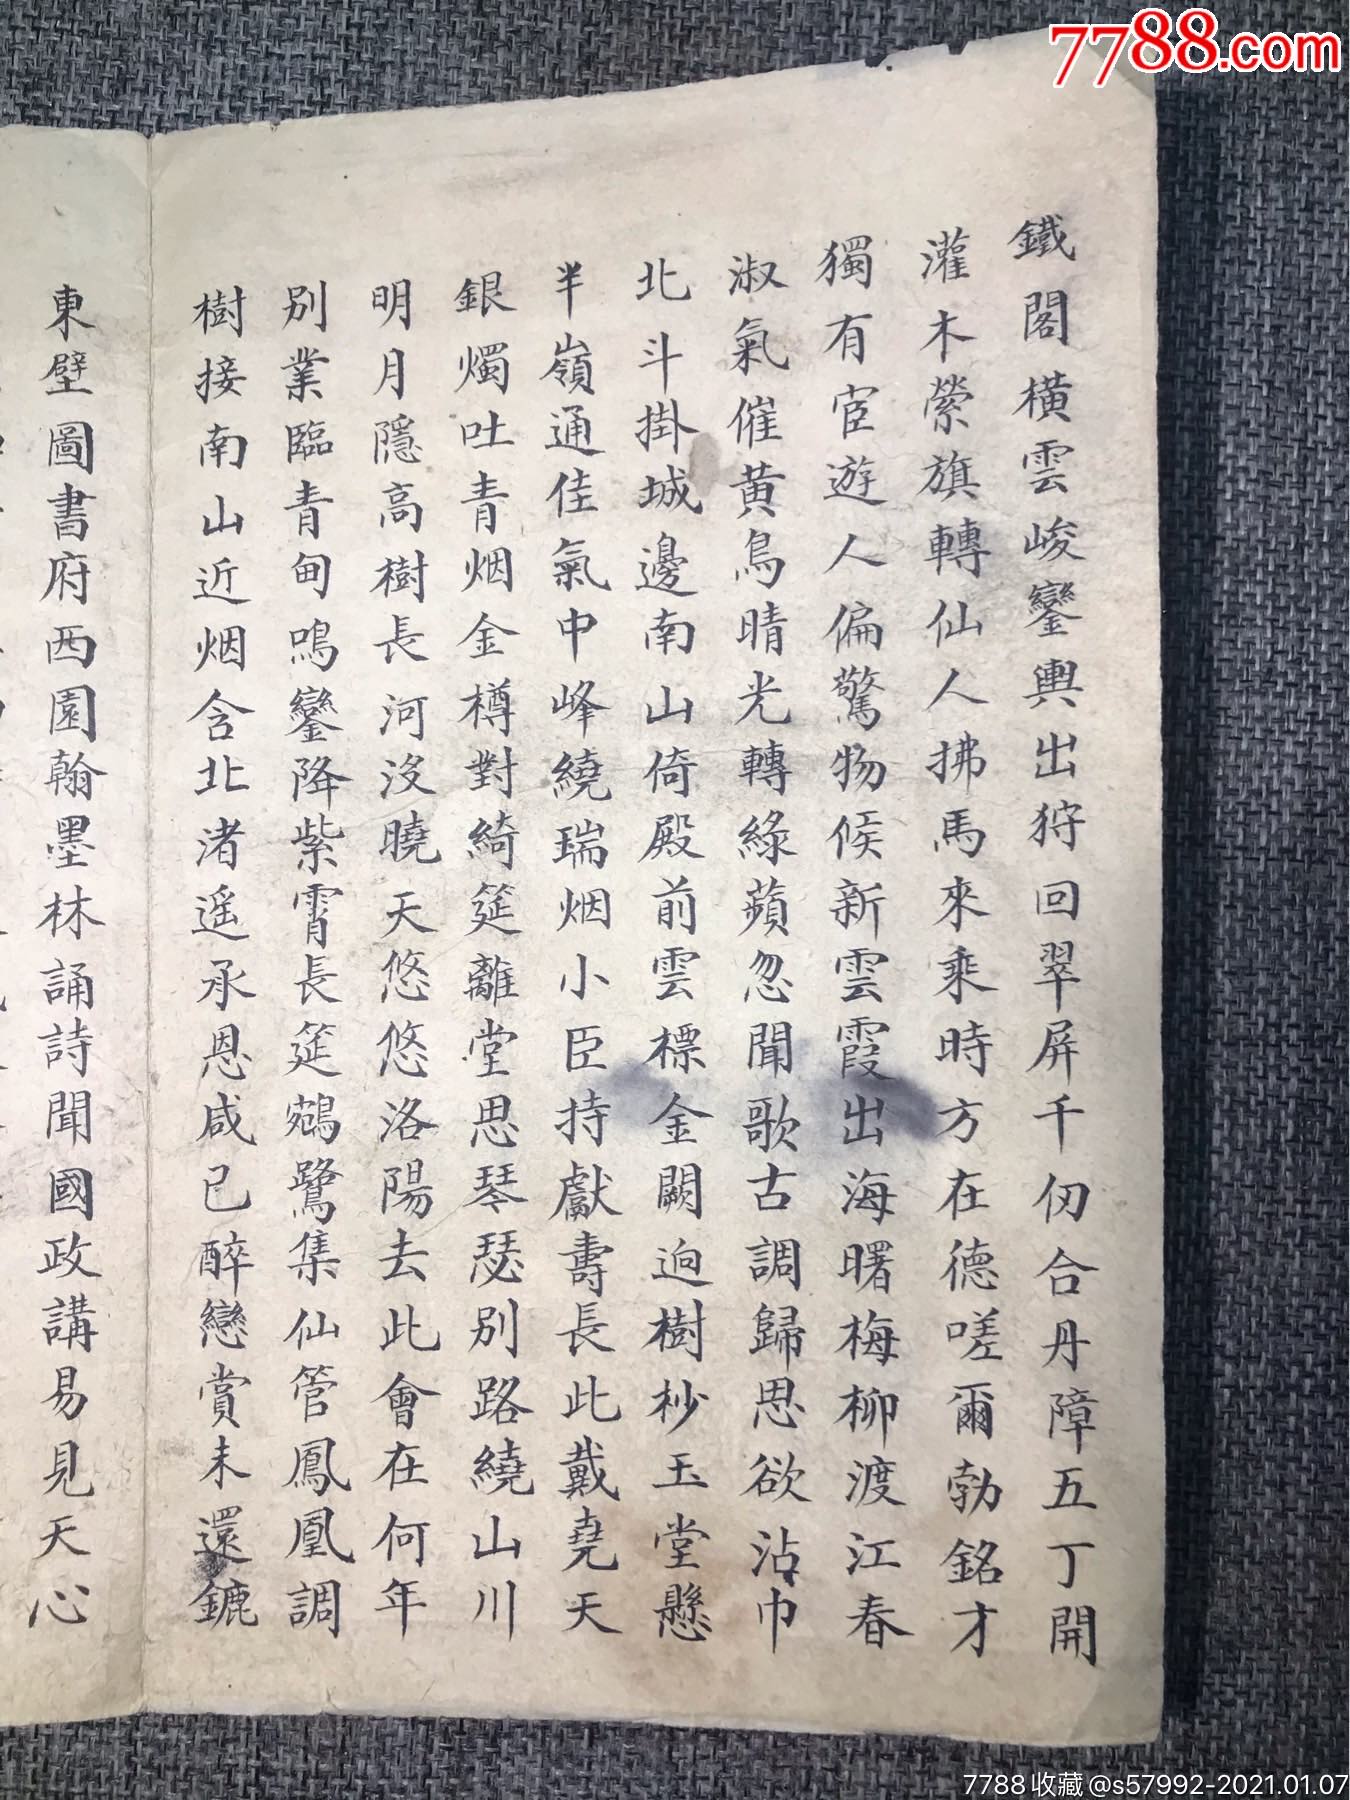 7788.com
鐵閣橫雲峻鑾輿出狩回翠屏千仞合丹障五丁開
灌木縈旗轉仙人拂馬來乘時方在德嗟爾勃銘才
獨有宦遊人偏驚物候新雲霞出海曙梅柳渡江春
淑氣催黄鳥晴光轉綠蘋忽聞歌古調歸思欲沾巾
北斗掛城邊南山倚殿前雲標金闕迥樹杪玉堂懸
半嶺通佳氣中峰繞瑞烟小臣持獻壽長此戴堯天
銀燭吐青烟金樽對綺筵離堂思琴瑟別路繞山川
明月隱高樹長河沒曉天悠悠洛陽去此會在何年
別業臨青甸鳴鑾降紫霄長筵鵷鷺集仙管鳳凰調
樹接南山近烟含北渚遥承恩咸已醉戀賞未還鑣
東壁圖書府西園翰墨林誦詩聞國政講易見天心
7788收藏@s57992-2021.01.07